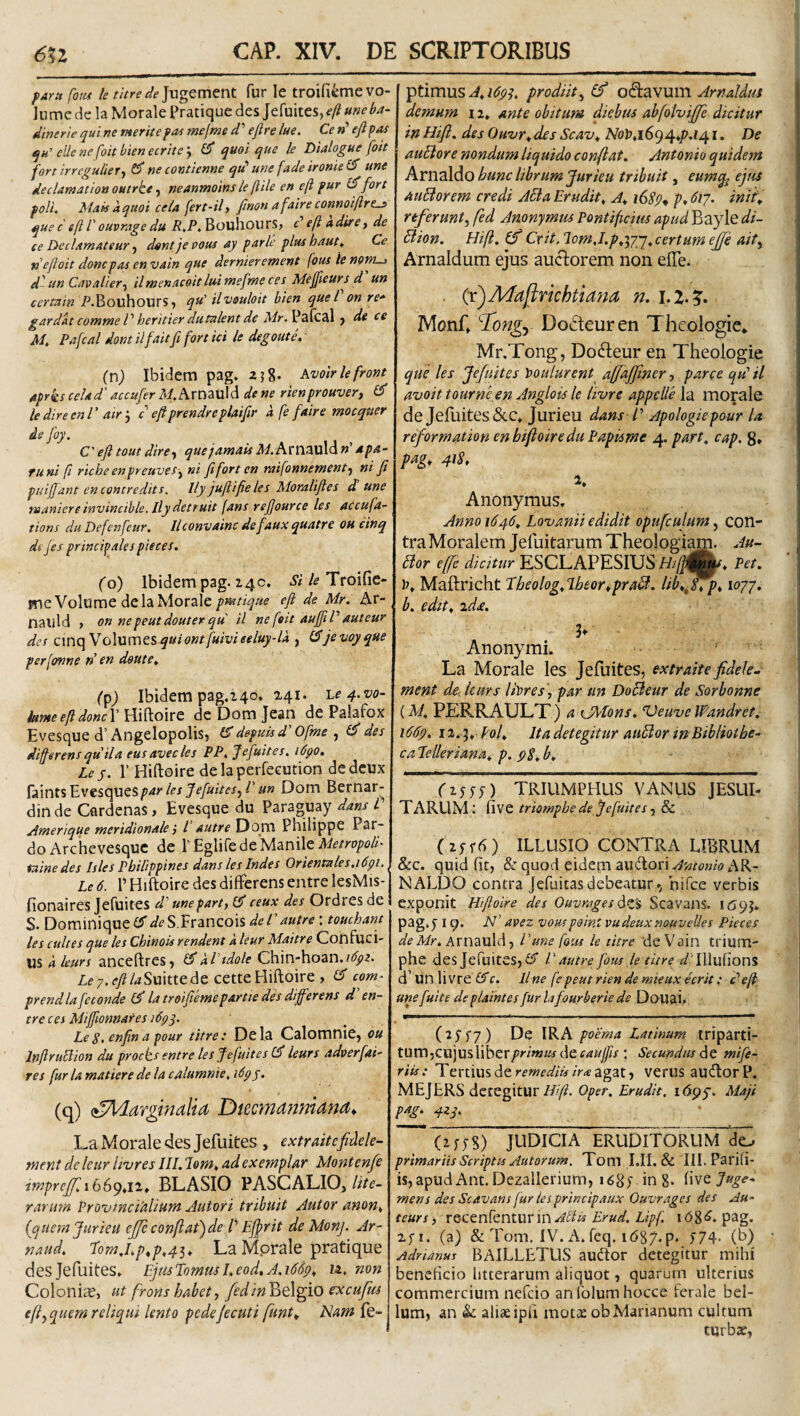 652 CAP. XIV. DE SCRIPTORIBUS
paru sous le titre de Jugement sur le troisième vo-
lume de la Morale Pratique des Jesuites, est une ba-
dinerie qui ne merite pas mesme d' estre lue. Ce n' est pas
qu' elle ne soit bien ecrite; & quoi que le Dialogue soit
fort irregulier, & ne contienne qu' une fade ironie & une
declamation outrée, neanmoins le stile en est pur & fort
poli. Mais à quoi cela sert-il, sinon a faire connoistre
que c' est l' ouvrage du R.P. Bouhours, c' est à dire, de
ce Declamateur, dont je vous ay parlé plus haut. Ce
n' estoit donc pas en vain que dernierement sous le nom
d' un Cavalier, il menaçoit lui mesme ces Messieurs d' un
certain P. Bouhours, qu' il vouloit bien que l' on re-
gardât comme l' heritier du talent de Mr. Pascal, de ce
M. Pascal dont il fait si fort ici le degouté.
(n) Ibidem pag. 238. Avoir le front
après cela d' accuser M. Arnauld de ne rien prouver, &
le dire en l' air; c' est prendre plaisir à se faire mocquer
de soy.
C' est tout dire, que jamais M. Arnauld n' a pa-
ru ni si riche en preuves, ni si fort en raisonnement, ni si
puissant en contredits. Il y justifie les Moralistes d' une
maniere invincible. Il y detruit sans ressource les accusa-
tions du Defenseur. Il convainc de faux quatre ou cinq
de ses principales pieces.
(o) Ibidem pag. 240. Si le Troisie-
me Volume de la Morale pratique est de Mr. Ar-
nauld, on ne peut douter qu' il ne soit aussi l' auteur
des cinq Volumes qui ont suivi celuy-là, & je voy que
personne n' en doute.
(p) Ibidem pag. 240. 241. Le 4. vo-
lume est donc l' Histoire de Dom Jean de Palafox
Evesque d' Angelopolis, & depuis d' Osme, & des
differens qu' il a eus avec les PP. Jesuites. 1690.
Le 5. l' Histoire de la persecution de deux
saints Evesques par les Jesuites, l' un Dom Bernar-
din de Cardenas, Evesque du Paraguay dans l'
Amerique meridionale; l' autre Dom Philippe Par-
do Archevesque de l' Eglise de Manile Metropoli-
taine des Isles Philippines dans les Indes Orientales. 1691.
Le 6. l' Histoire des differens entre les Mis-
sionaires Jesuites d' une part, & ceux des Ordres de
S. Dominique & de S. Francois de l' autre: touchant
les cultes que les Chinois rendent à leur Maitre Confuci-
us à leurs ancestres, & à l' idole Chin-hoan. 1692.
Le 7. est la Suitte de cette Histoire, & com-
prend la seconde & la troisiéme partie des differens d' en-
tre ces Missionnaires 1693.
Le 8. enfin a pour titre: De la Calomnie, ou
Instruction du procès entre les Jesuites & leurs adversai-
res sur la matiere de la calumnie. 1695.
(q) Marginalia Diecmanniana.
La Morale des Jesuites, extraite fidele-
ment de leur livres III. Tom. ad exemplar Montense
impress. 1669.12. BLASIO PASCALIO, lite-
rarum Provincialium Autori tribuit Autor anon.
(quem Jurieu esse constat) de l' Esprit de Monf. Ar-
naud. Tom.I.p.p.43. La Morale pratique
des Jesuites. Ejus Tomus I. eod. A. 1669. 12. non
Coloniæ, ut frons habet, sed in Belgio excusus
est, quem reliqui lento pede secuti sunt. Nam se-
ptimus A. 1693. prodiit, & octavum Arnaldus
demum 12. ante obitum diebus absolvisse dicitur
in Hist. des Ouvr. des Scav. Nov. 1694.p.141. De
auctore nondum liquido constat. Antonio quidem
Arnaldo hunc librum Jurieu tribuit, eumq; ejus
auctorem credi Acta Erudit. A. 1689. p. 617. init.
referunt, sed Anonymus Pontificius apud Bayle di-
ction. Hist. & Crit. Tom.I.p.377. certum esse ait,
Arnaldum ejus auctorem non esse.
(r) Mastrichtiana n. 1. 2. 3.
Monf. Tong, Docteur en Theologie.
Mr. Tong, Docteur en Theologie
que les Jesuites voulurent assassiner, parce qu' il
avoit tourné en Anglois le livre appellé la morale
de Jesuites &c. Jurieu dans l' Apologie pour la
reformation en histoire du Papisme 4. part. cap. 8.
pag. 418.
2.
Anonymus.
Anno 1646. Lovanii edidit opusculum, con-
tra Moralem Jesuitarum Theologiam. Au-
ctor esse dicitur ESCLAPESIUS Pet.
v. Mastricht Theolog. Theor. pract. lib. 8. p. 1077.
b. edit. 2dæ.
3.
Anonymi.
La Morale les Jesuites, extraite fidele-
ment de leurs livres, par un Docteur de Sorbonne
(M. PERRAULT) a Mons. Veuve Wandret.
1669. 12. 3. Vol. Ita detegitur auctor in Bibliothe-
ca Telleriana. p. 98. b.
(2555) TRIUMPHUS VANUS JESUI-
TARUM: sive triomphe de Jesuites, &
(2556) ILLUSIO CONTRA LIBRUM
&c. quid sit, & quod eidem auctori Antonio AR-
NALDO contra Jesuitas debeatur, hisce verbis
exponit Histoire des Ouvrages des Scavans. 1693.
pag. 519. N' avez vous point vu deux nouvelles Pieces
de Mr. Arnauld, l' une sous le titre de Vain trium-
phe des Jesuites, & l' autre sous le titre d' Illusions
d' un livre &c. Il ne se peut rien de mieux écrit: c' est
une suite de plaintes sur la fourberie de Douai.
(2557) De IRA poëma Latinum triparti-
tum, cujus liber primus de caussis: Secundus de mise-
riis: Tertius de remediis iræ agat, verus auctor P.
MEJERS detegitur Hist. Oper. Erudit. 1695. Maji
pag. 423.
(2558) JUDICIA ERUDITORUM de
primariis Scriptis Autorum. Tom I.II. & III. Parisi-
is, apud Ant. Dezallerium, 1685 in 8. sive Juge-
mens des Scavans sur les principaux Ouvrages des Au-
teurs, recensentur in Actis Erud. Lips. 1686. pag.
251. (a) & Tom. IV. A. seq. 1687. p. 574. (b)
Adrianus BAILLETUS auctor detegitur mihi
beneficio litterarum aliquot, quarum ulterius
commercium nescio an solum hocce ferale bel-
lum, an & aliæ ipsi motæ ob Marianum cultum
turbæ,